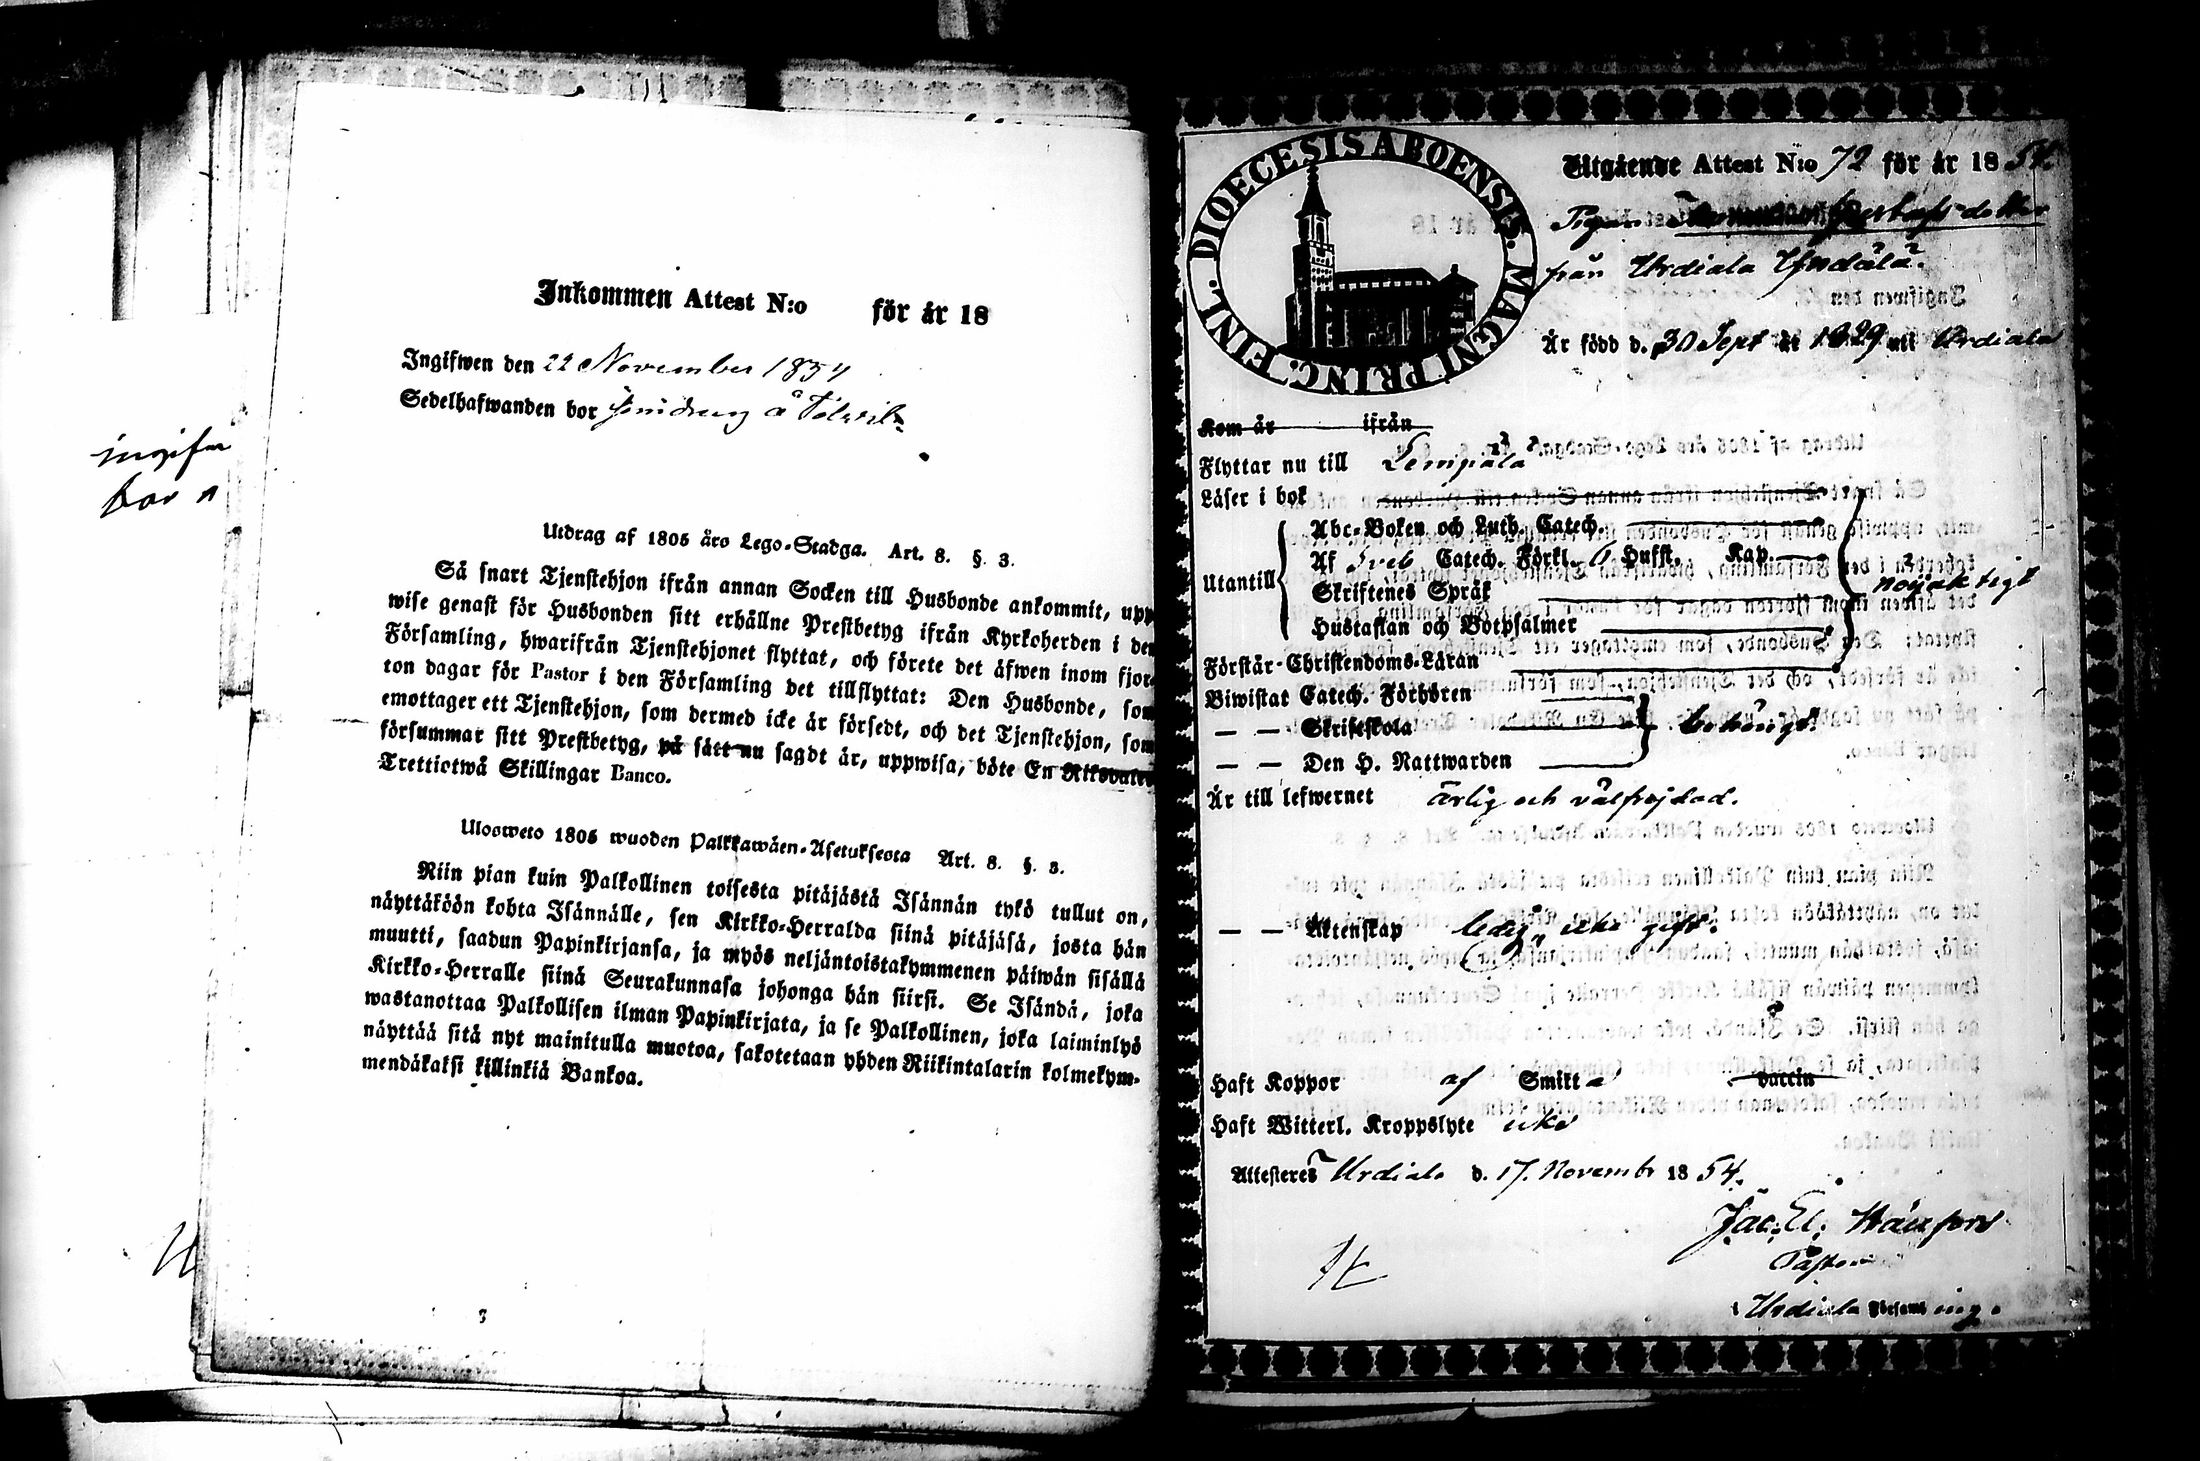 ingifw
bor a
Inkommen Attest N:o för år 18
Ingifwen den 22 November 1854
Sedelhafwanden bor å
Utdrag af 1805 års Lego-Stadga. Art. 8. §. 3.
Så snart Tjenstehjon ifrån annan Socken till Husbonde ankommit, upp
wise genast för Husbonden sitt erhållne Prestbetyg ifrån Kyrkoherden i den
Församling, hwarifrån Tjenstehjonet flyttat, och förete det äfwen inom fjor-
ton dagar för Pastor i den Församling det tillflyttat: Den Husbonde, som
emottager ett Tjenstehjon, som dermed icke är försedt, och det Tjenstehjon, som
försummar sitt Prestbetyg, på sätt nu sagdt är, uppwisa, böte En Riksdaler
Trettiotwå Skillingar Banco.
Ulosweto 1805 wuoden Palkkawäen-Asetuksesta Art. 8. §. 3.
Niin pian kuin Palkollinen toisesta pitäjästä Isännän tykö tullut on,
näyttäköön kohta Isännälle, sen Kirkko-Herralda siinä pitäjäsä, josta hän
muutti, saadun Papinkirjansa, ja myös neljäntoistakymmenen päiwän sisällä
Kirkko-Herralle siinä Seurakunnasa johonga hän siirsi. Se Isändä, joka
wastanottaa Palkollisen ilman Papinkirjata, ja se Palkollinen, joka laiminlyö
näyttää sitä nyt mainitulla muotoa, sakotetaan yhden Riikintalarin kolmekym-
mendäkaksi killinkiä Bankoa.
DIOECESIS ABOENSIS. MAGNI PRINC. FINL.
Utgående Attest N:o 72 för år 1854.
Pigan Gustafsdotter
från Urdiala
Är född d. 30 Sept år 1829 uti Urdiala
Kom år ifrån
Flyttar nu till Lempälä
Läser i bok
Abc-Boken och Luth. Catech.
Af Sveb Catech. Förkl. Hufst. Kap.
Utantill
Skriftenes Språk
nöjaktigt
Hustaflan och Botpsalmer
Förstår Christendoms-Läran
Biwistat Catech. Förhören
— — Skriftskola
bewistat
— — Den H. Nattwarden
Är till lefwernet ärlig och välfrejdad.
— — Äktenskap ledig, icke gift.
Haft Koppor af Smitta vaccin
Haft Witterl. Kroppslyte icke
Attesteres Urdiala d. 17. Novembr 1854.
Jac. El.
Pastor
i Urdiala Församl ing.